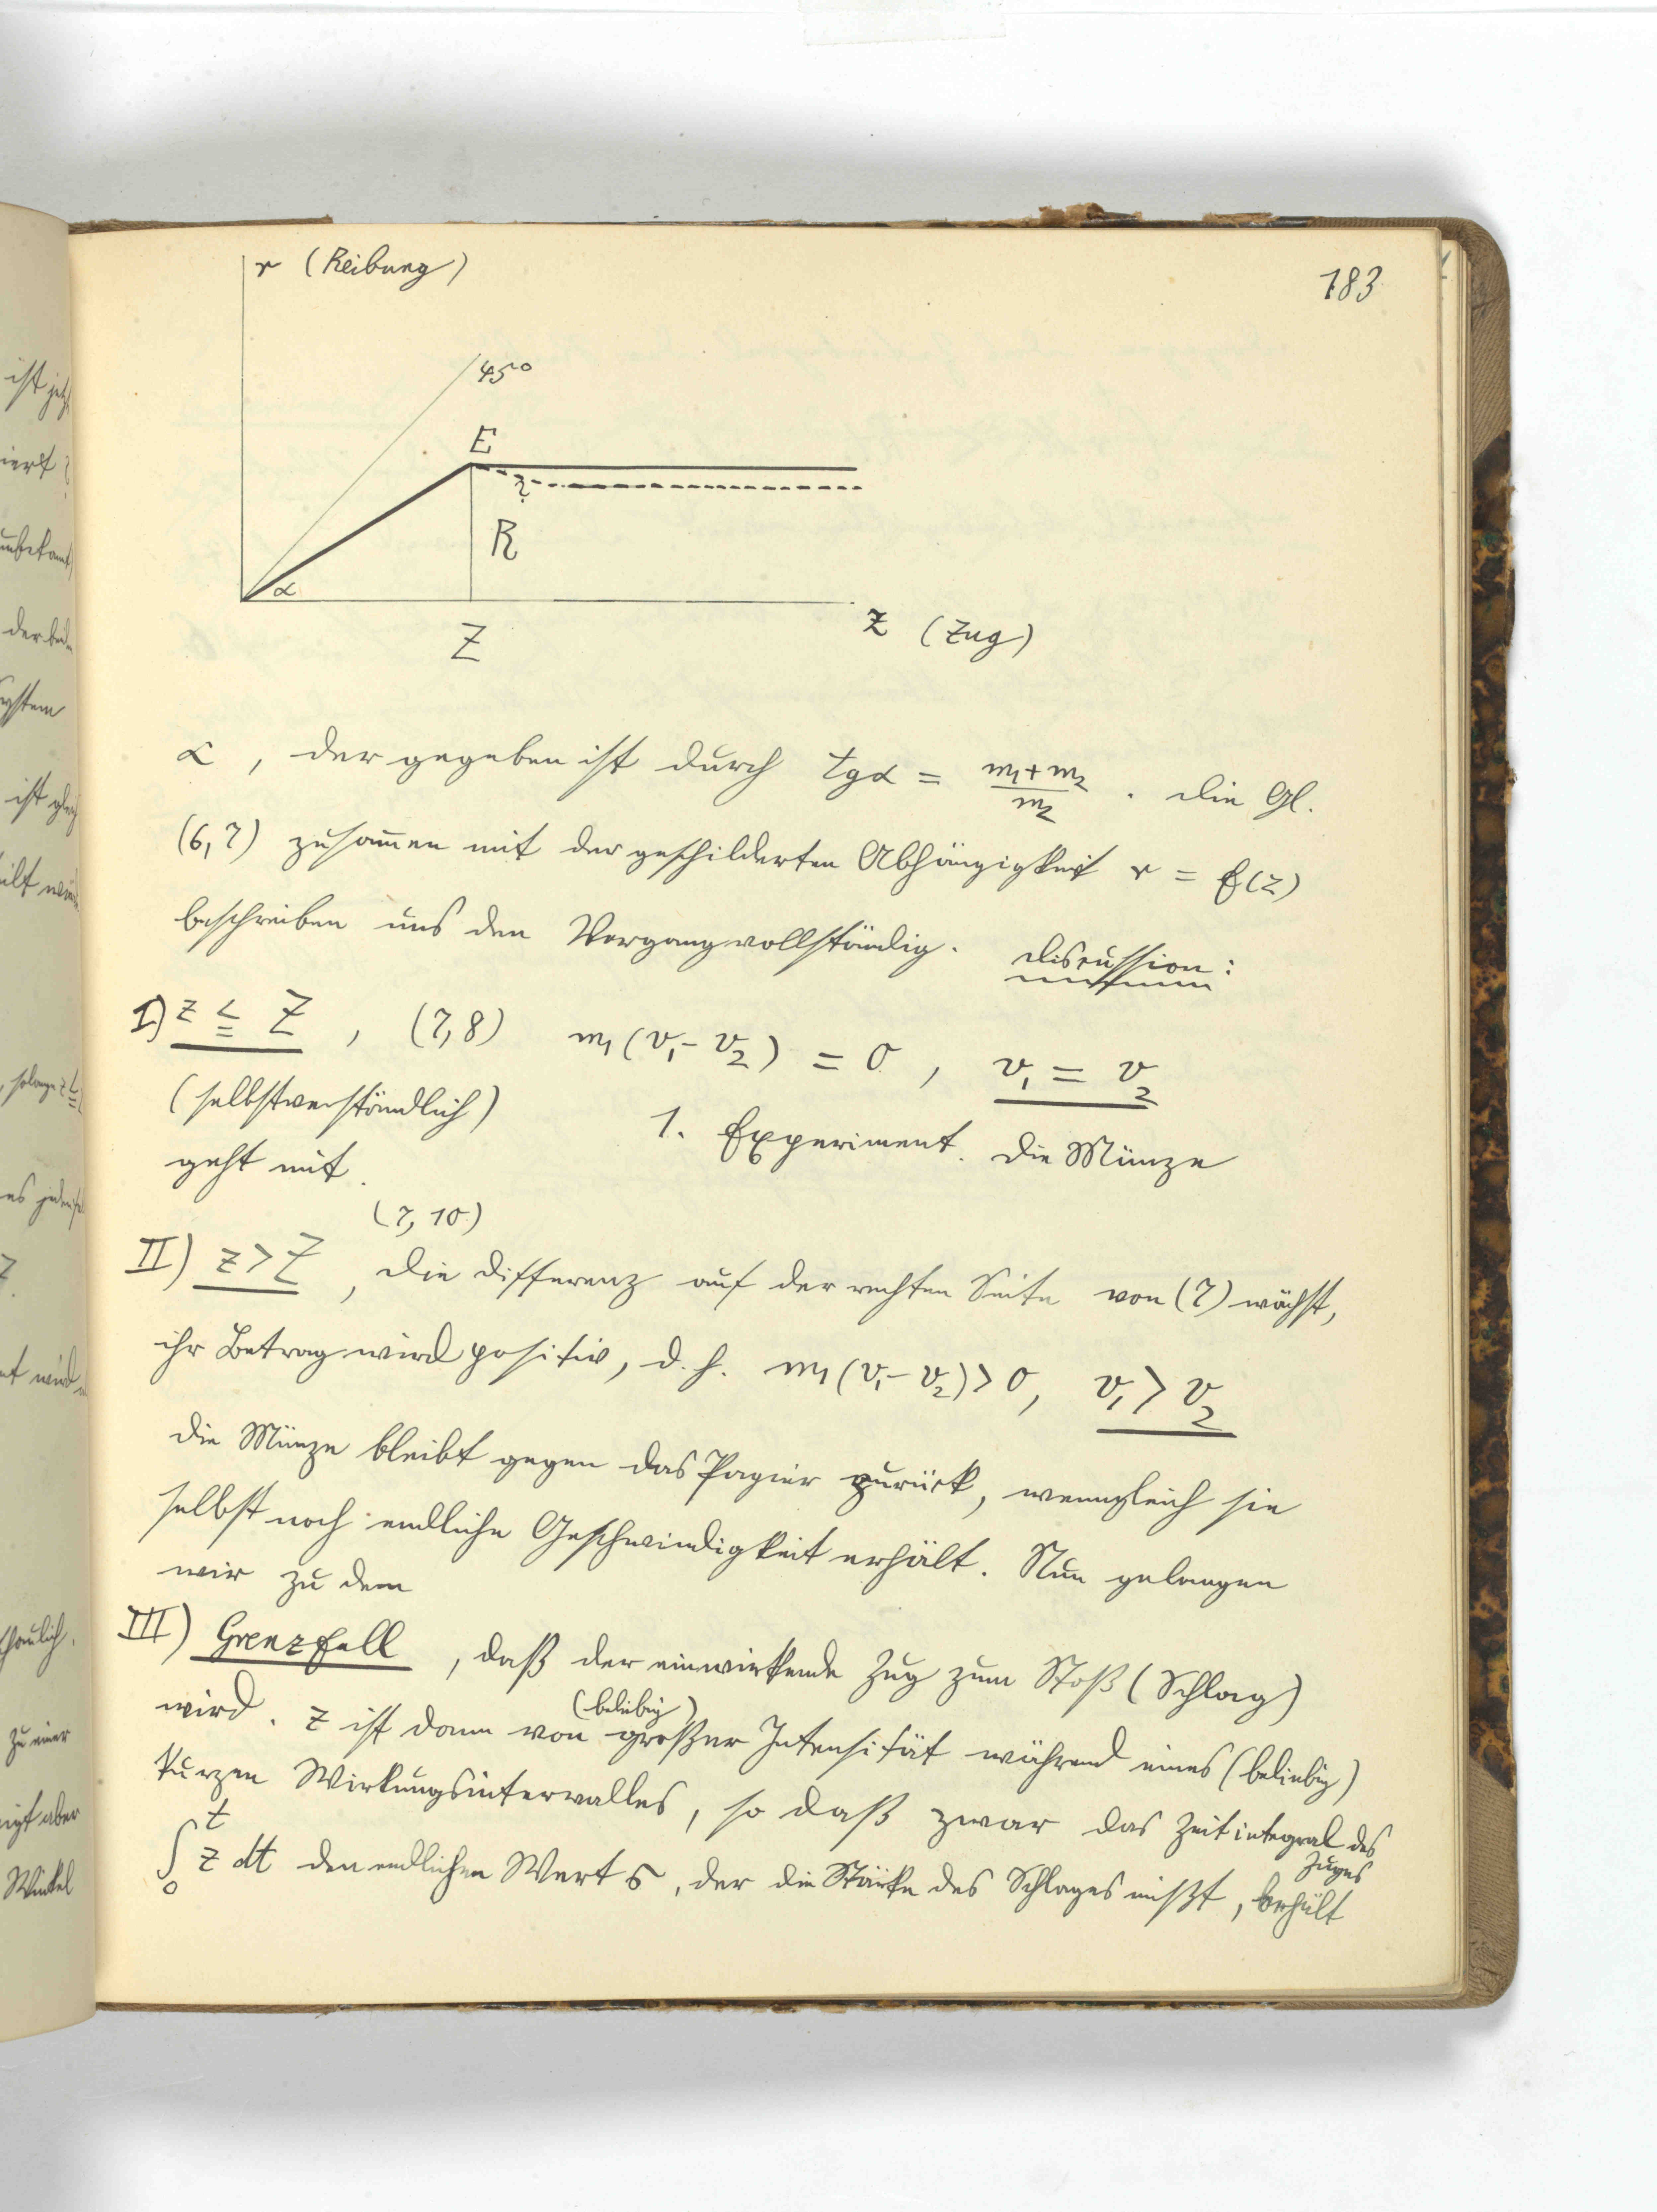 183
r (Reibung)
45°
E
?
R
α
Z
z (Zug)
α, der gegeben ist durch tgα = (m₁+m₂)/m₂. Die Gl.
(6,7) zusam̄en mit der geschilderten Abhängigkeit r = f(z)
beschreiben uns den Vorgang vollständig. Discussion:
I) z ≦ Z, (7,8) m₁(v₁-v₂) = 0, v₁ = v₂
(selbstverständlich) 1. Experiment. Die Münze
geht mit.
(7, 10)
II) z > Z, die Differenz auf der rechten Seite von (7) wächst,
ihr Betrag wird positiv, d.h. m₁(v₁-v₂) > 0, v₁ > v₂
die Münze bleibt gegen das Papier zurück, wenngleich sie
selbst noch endliche Geschwindigkeit erhält. Nun gelangen
wir zu dem
III) Grenzfall, daß der einwirkende Zug zum Stoß (Schlag)
wird. z ist dann von (beliebig) großer Intensität während eines (beliebig)
kurzen Wirkungsintervalles, so daß zwar das Zeitintegral des
Zuges
∫₀ᵗ z dt den endlichen Wert S, der die Stärke des Schlages mißt, behält
ist jetzt
iert
unbekannt
der bei
System
ist gleich
solange z ≦
Z.
zu einer
aber
Winkel